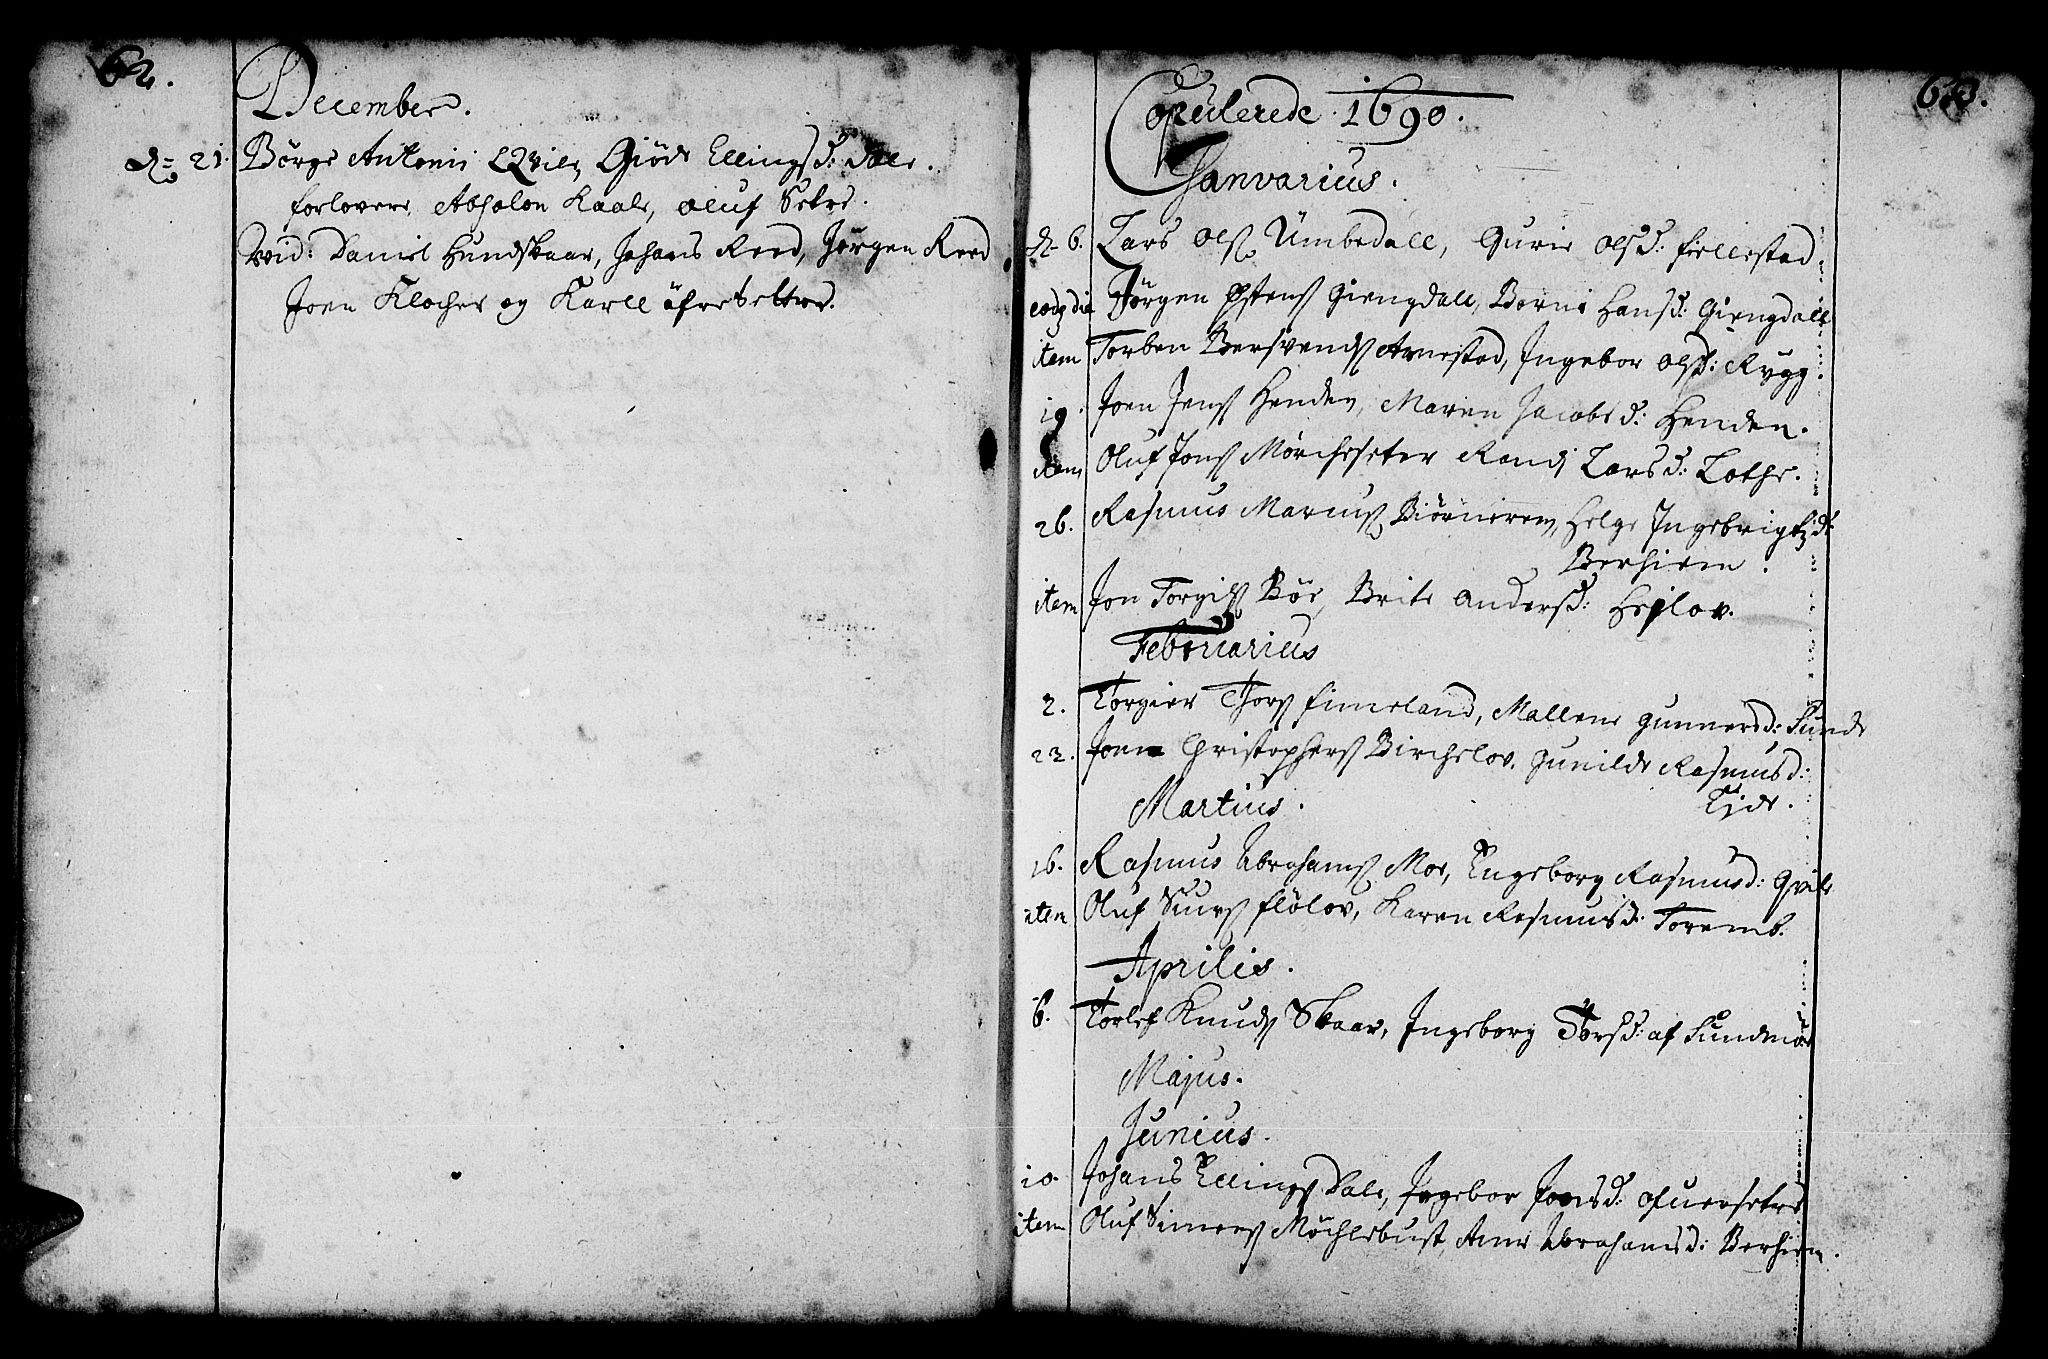 62.
December.
d. 21. Börge Antonis Qvile, Giöde Ellingsd: Dale.
forlovere, Absalon Kaale, oluf Setre.
Vid: Daniel Hundskaar, Johans Reed, Jörgen Reed
Joen Klocher og Karll öfre Settre.
63.
Copulerede 1690.
Janvarius.
d. 6. Lars Ols Ümbedall, Gurie Olsd: fiellestad.
eodz die Jörgen Ystens Giengdall, Borni Hansd: Giengdall
item Torben Bersvends Arnestad, Ingebor Olsd: Rygg.
19. Joen Jens Henden, Maren Jacobsd: Henden.
item Oluf Jons Mörcheseter Randi Larsd: Lothe.
26. Rasmus Marcus Biörnerem, Helge Ingebrigtzd:
Berhiem.
item Jon Torgils Böe, Brite Andersd: Hejlov.
Februarius
2. Torgier Thors fimeland, Mallene gunnersd: Sunde
22. Joen Christophers Birchelov. Gunilde Rasmusd:
Eide.
Martius.
16. Rasmus Abrahams Moe, Engeborg Rasmusd: Qvile
item Oluf Siurs flölov, Karen Rasmusd: Toremb.
Aprilis.
6. Torlef Knuds Skaar, Ingeborg Torsd: af Sundmör
Majus.
Junius.
10. Johans Ellings Dale, Ingebor Jonsd: Ofuersetre
item Oluf Simens Möchlebust, Ane Abrahamsd: Berhiem.